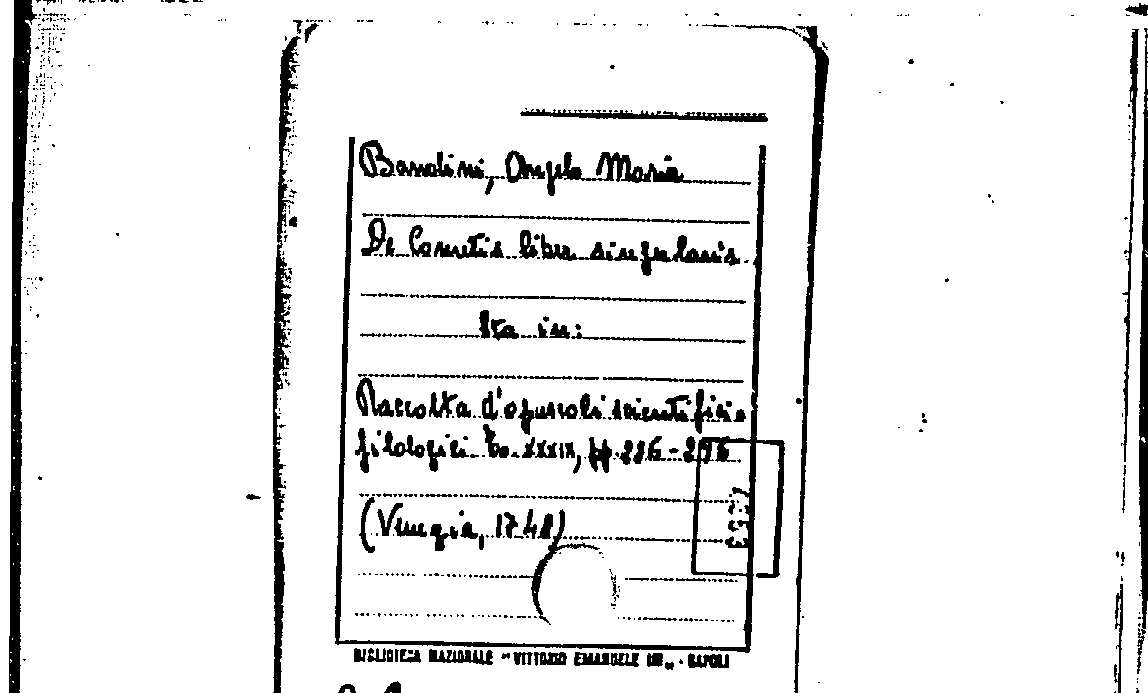 Bandini, Angelo Maria
De Cometis liber singularis.
Sta in:
Raccolta d'opuscoli scientifici e
filologici. To. XXXIX, pp. 226-276
(Venezia, 1748)
BIBLIOTECA NAZIONALE "VITTORIO EMANUELE III" - NAPOLI